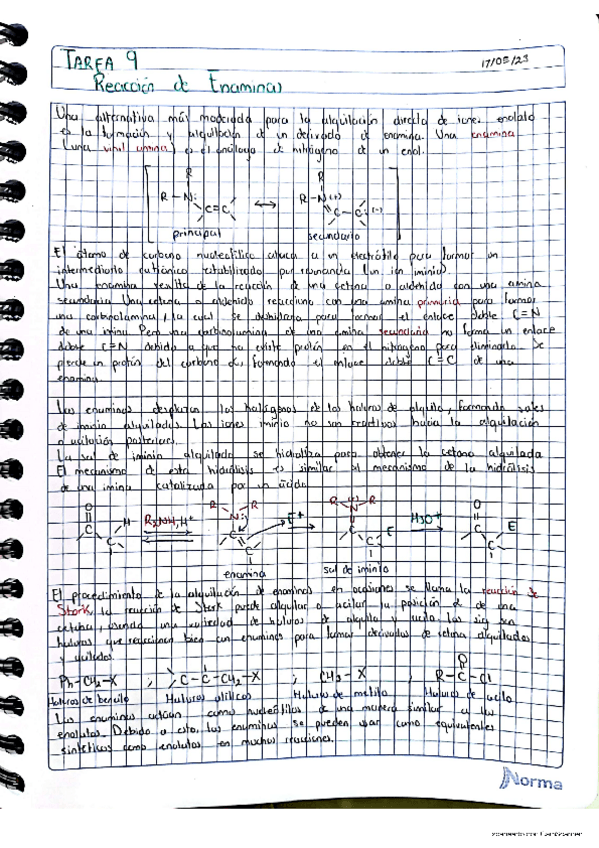 TAREA 9
17/05/23
Reacción de Enaminas
Una alternativa más moderada para la alquilación directa de iones enolato
es la formación y alquilación de un derivado de enamina. Una enamina
(una vinil amina) es el análogo de nitrógeno de un enol.
R R
R-N: R-N(+)
C=C ↔ C-C(-)
principal secundario
El átomo de carbono nucleofílico ataca a un electrófilo para formar un
intermediario catiónico estabilizado por resonancia (un ion iminio).
Una enamina resulta de la reacción de una cetona o aldehído con una amina
secundaria. Una cetona o aldehído reacciona con una amina primaria para formar
una carbinolamina, la cual se deshidrata para formar el enlace doble C=N
de una imina. Pero una carbinolamina de una amina secundaria no forma un enlace
doble C=N debido a que no existe protón en el nitrógeno para eliminarlo. Se
pierde un protón del carbono α, formando el enlace doble C=C de una
enamina.
Las enaminas desplazan los halógenos de los haluros de alquilo, formando sales
de iminio alquiladas. Los iones iminio no son reactivos hacia la alquilación
o acilación posteriores.
La sal de iminio alquilada se hidroliza para obtener la cetona alquilada
El mecanismo de esta hidrólisis es similar al mecanismo de la hidrólisis
de una imina catalizada por un ácido
O R R R (+) R O
C H R₂NH, H⁺ N: E⁺ N H₃O⁺ C E
C C E C
enamina sal de iminio
El procedimiento de la alquilación de enaminas en ocasiones se llama la reacción de
Stork, la reacción de Stork puede alquilar o acilar la posición α de una
cetona, usando una variedad de haluros de alquilo y acilo. Los sig son
haluros que reaccionan bien con enaminas para formar derivados de cetona alquilados
y acilados
Ph-CH₂-X ; C=C-CH₂-X ; CH₃-X R-C-Cl
Haluros de bencilo Haluros alílicos Haluros de metilo Haluros de acilo
Las enaminas actúan como nucleófilos de una manera similar a los
enolatos. Debido a esto, las enaminas se pueden usar como equivalentes
sintéticos como enolatos en muchas reacciones.
Norma
scanned with CamScanner